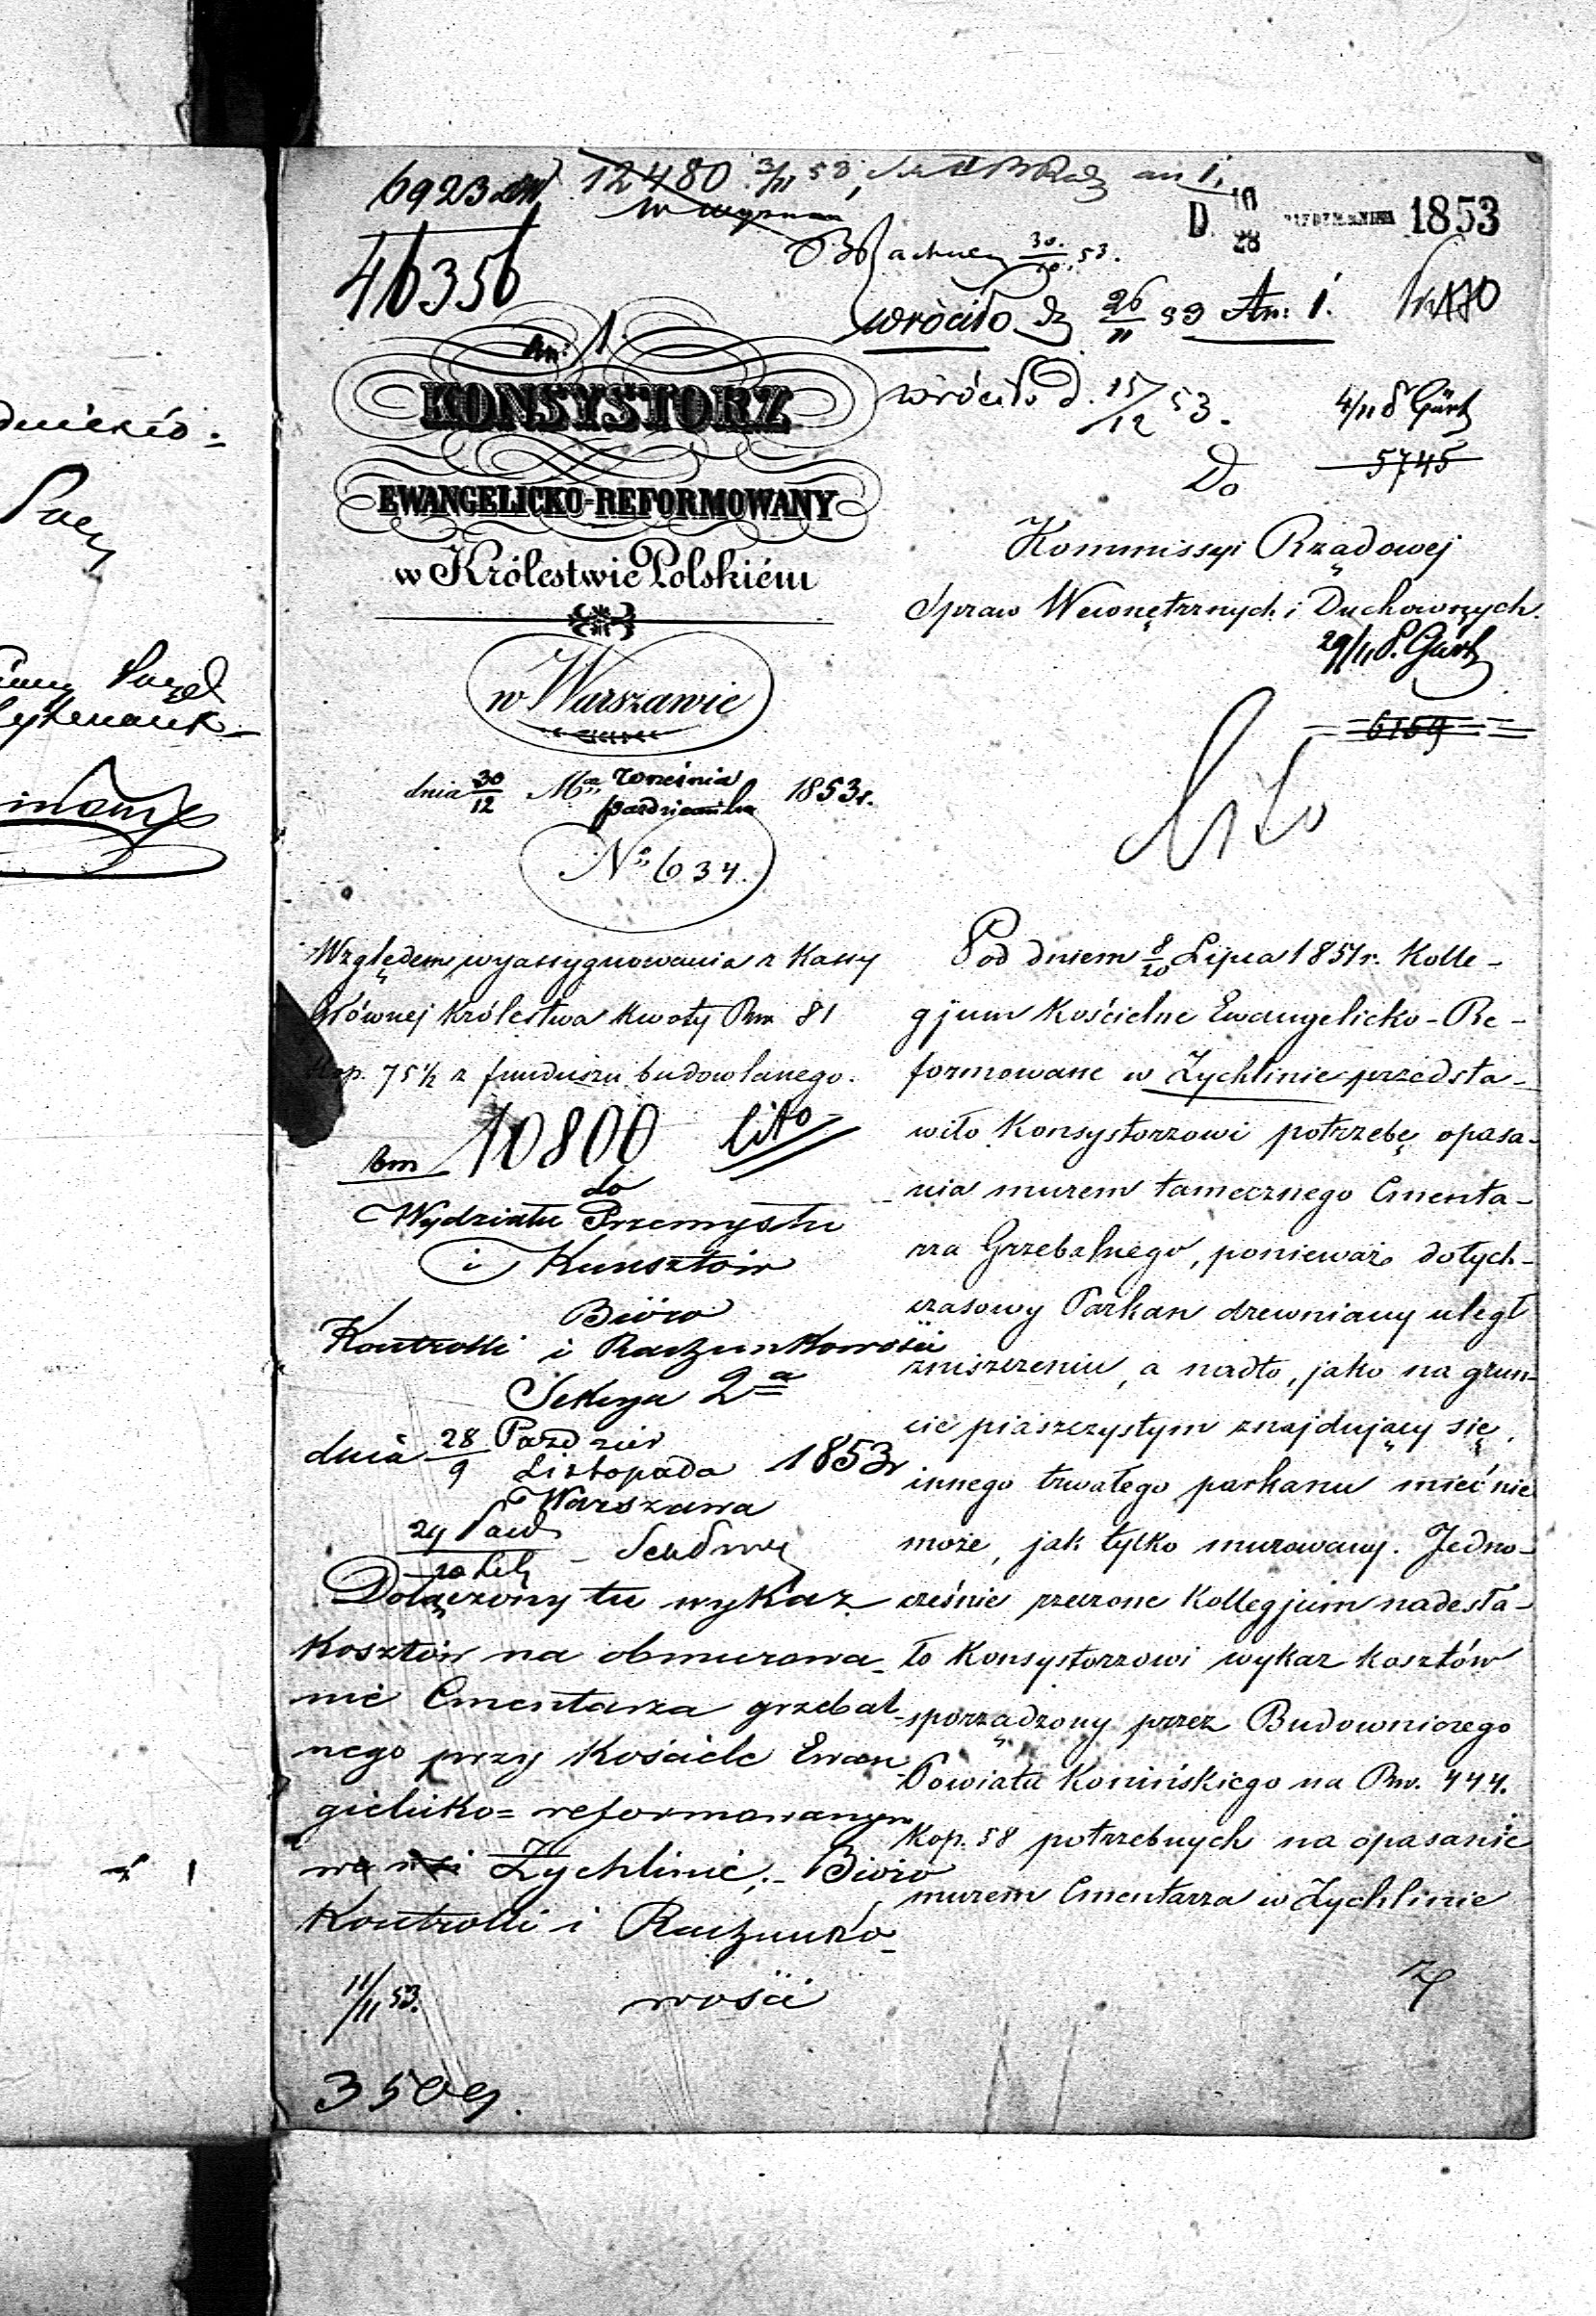 12480 3/11 53
46356
D. 10/28 1853
30/10 53.
wróciło d 26/11 53 An: 1.
wróciło d. 15/12 53.
4/11 S Gürtz
5745
An: 1.
KONSYSTORZ
EWANGELICKO-REFORMOWANY
w Królestwie Polskiém
w Warszawie
dnia 30/12 Mca Września Października 1853 r.
No 634.
Do
Kommissyi Rządowej
Spraw Wewnętrznych i Duchownych.
29/11 S. Gürtz
6159
Cito
Względem wyassygnowania z Kassy
Głównej Królestwa kwoty Rsr. 81
Kop. 75 1/2 z funduszu budowlanego.
10800 Cito
do
Wydziału Przemysłu
i Kunsztów
Bióro
Kontrolli i Rachunkowości
Sekcya 2a
dnia 28/9 Paździer Listopada 1853 r
Warszawa
Dołączony tu wykaz
Kosztów na obmurowa-
nie Cmentarza grzebal-
nego przy Kościele Ewan-
gielicko=reformowanym
we wsi Żychlinie,- Bióro
Kontrolli i Rachunko-
wości
11/11 53.
3509.
Pod dniem 8/20 Lipca 1851 r. Kolle-
gjum Kościelne Ewangelicko-Re-
formowane w Żychlinie przedsta-
wiło Konsystorzowi potrzebę opasa-
nia murem tamecznego Cmenta-
rza Grzebalnego, ponieważ dotych-
czasowy Parkan drewniany uległ
zniszczeniu, a nadto, jako na grun-
cie piaszczystym znajdujący się,
innego trwałego parkanu mieć nie
może, jak tylko murowany. Jedno-
cześnie rzeczone Kollegjum nadesła-
ło Konsystorzowi wykaz kosztów
sporządzony przez Budowniczego
Powiatu Konińskiego na Rsr. 444.
Kop. 58 potrzebnych na opasanie
murem Cmentarza w Żychlinie